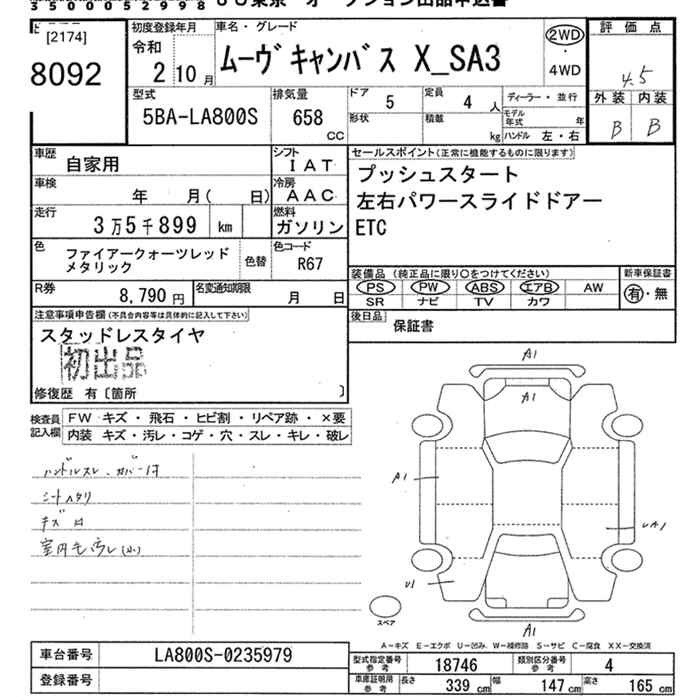 350000529988 USS東京 オークション出品申込書
[2174]
8092
初度登録年月
令和
2年10月
車名・グレード
ムーヴキャンバス X_SA3
2WD
・
4WD
評価点
4.5
外装 内装
B B
型式
5BA-LA800S
排気量
658
CC
ドア 5
形状
定員 4 人
積載 kg
ディーラー・並行
モデル年式 年
ハンドル 左・右
車歴 自家用
シフト IAT
車検 年 月( 日)
冷房 AAC
走行 3万5千899 km
燃料 ガソリン
色 ファイアークォーツレッド
メタリック
色替
色コード R67
R券 8,790円
名変通知期限 月 日
セールスポイント(正常に機能するものに限ります)
プッシュスタート
左右パワースライドドアー
ETC
装備品 (純正品に限り○をつけてください)
PS PW ABS エアB AW
SR ナビ TV カワ
新車保証書
有・無
後日品 保証書
注意事項申告欄(不具合内容等は具体的に記入して下さい)
スタッドレスタイヤ
初出品
修復歴 有〔箇所 〕
検査員記入欄
FW キズ・飛石・ヒビ割・リペア跡・×要
内装 キズ・汚レ・コゲ・穴・スレ・キレ・破レ
ハンドルスレ、カバー付
シートヘタリ
キズ 凹
室内モ汚レ(小)
A1
A1
A1
UA1
U1
A1
スペア
A-キズ E-エクボ U-凹み W-補修跡 S-サビ C-腐食 XX-交換済
車台番号 LA800S-0235979
登録番号
型式指定番号 参考 18746
類別区分番号 参考 4
車庫証明用 参考 長さ 339 cm 幅 147 cm 高さ 165 cm